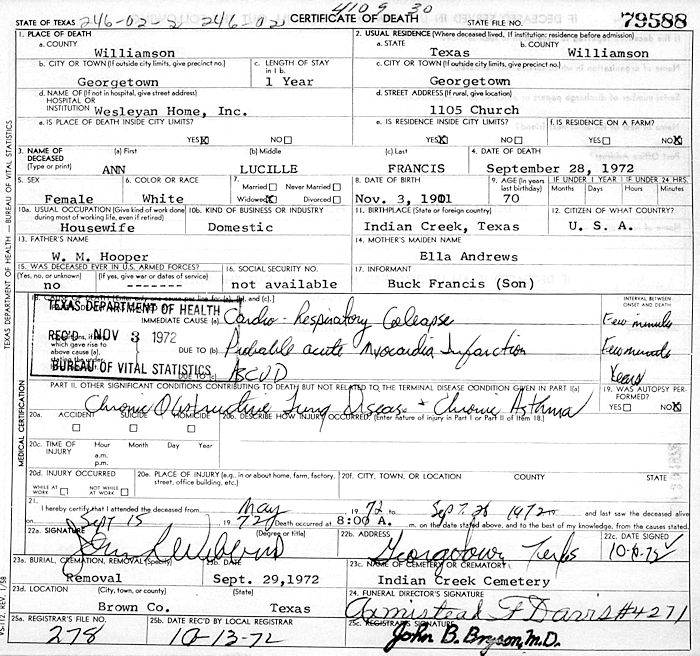 4109 30
STATE OF TEXAS 246-02-2 246-02 CERTIFICATE OF DEATH STATE FILE NO. 79588
1. PLACE OF DEATH 2. USUAL RESIDENCE (Where deceased lived. If institution: residence before admission)
a. COUNTY a. STATE b. COUNTY
Williamson Texas Williamson
b. CITY OR TOWN (If outside city limits, give precinct no.) c. LENGTH OF STAY in 1 b. c. CITY OR TOWN (If outside city limits, give precinct no.)
Georgetown 1 Year Georgetown
d. NAME OF (If not in hospital, give street address) HOSPITAL OR INSTITUTION d. STREET ADDRESS (If rural, give location)
Wesleyan Home, Inc. 1105 Church
e. IS PLACE OF DEATH INSIDE CITY LIMITS? e. IS RESIDENCE INSIDE CITY LIMITS? f. IS RESIDENCE ON A FARM?
YES X NO YES X NO YES NO X
3. NAME OF DECEASED (Type or print) (a) First (b) Middle (c) Last 4. DATE OF DEATH
ANN LUCILLE FRANCIS September 28, 1972
5. SEX 6. COLOR OR RACE 7. Married Never Married Widowed X Divorced 8. DATE OF BIRTH 9. AGE (In years last birthday) IF UNDER 1 YEAR Months Days IF UNDER 24 HRS. Hours Minutes
Female White Nov. 3, 1901 70
10a. USUAL OCCUPATION (Give kind of work done during most of working life, even if retired) 10b. KIND OF BUSINESS OR INDUSTRY 11. BIRTHPLACE (State or foreign country) 12. CITIZEN OF WHAT COUNTRY?
Housewife Domestic Indian Creek, Texas U. S. A.
13. FATHER'S NAME 14. MOTHER'S MAIDEN NAME
W. M. Hooper Ella Andrews
15. WAS DECEASED EVER IN U.S. ARMED FORCES? 16. SOCIAL SECURITY NO. 17. INFORMANT
(Yes, no, or unknown) (If yes, give war or dates of service)
no ------- not available Buck Francis (Son)
18. CAUSE OF DEATH [Enter only one cause per line for (a), (b), and (c).] INTERVAL BETWEEN ONSET AND DEATH
TEXAS DEPARTMENT OF HEALTH
IMMEDIATE CAUSE (a) Cardio-Respiratory Collapse Few minutes
REC'D NOV 3 1972
which gave rise to above cause (a), stating the under-
DUE TO (b) Probable acute Myocardia Infarction Few minutes
BUREAU OF VITAL STATISTICS
DUE TO (c) ASCVD Years
PART II. OTHER SIGNIFICANT CONDITIONS CONTRIBUTING TO DEATH BUT NOT RELATED TO THE TERMINAL DISEASE CONDITION GIVEN IN PART I(a) 19. WAS AUTOPSY PERFORMED?
Chronic Obstructive Lung Disease + Chronic Asthma YES NO X
20a. ACCIDENT SUICIDE HOMICIDE 20b. DESCRIBE HOW INJURY OCCURRED. (Enter nature of injury in Part I or Part II of Item 18.)
20c. TIME OF INJURY Hour Month Day Year
a.m.
p.m.
20d. INJURY OCCURRED 20e. PLACE OF INJURY (e.g., in or about home, farm, factory, street, office building, etc.) 20f. CITY, TOWN, OR LOCATION COUNTY STATE
WHILE AT WORK NOT WHILE AT WORK
21. I hereby certify that I attended the deceased from May 1972 to Sept. 28 1972 and last saw the deceased alive
on Sept 15 1972. Death occurred at 8:00 A. m. on the date stated above, and to the best of my knowledge, from the causes stated.
22a. SIGNATURE (Degree or title) 22b. ADDRESS 22c. DATE SIGNED
Georgetown Texas
23a. BURIAL, CREMATION, REMOVAL (Specify) 23b. DATE 23c. NAME OF CEMETERY OR CREMATORY
Removal Sept. 29, 1972 Indian Creek Cemetery
23d. LOCATION (City, town, or county) (State) 24. FUNERAL DIRECTOR'S SIGNATURE
Brown Co. Texas Armistead F Davis #4271
25a. REGISTRAR'S FILE NO. 25b. DATE REC'D BY LOCAL REGISTRAR 25c. REGISTRAR'S SIGNATURE
278 10-13-72 John B. Bryson, M.D.
TEXAS DEPARTMENT OF HEALTH — BUREAU OF VITAL STATISTICS
MEDICAL CERTIFICATION
VS-112, REV. 1/58